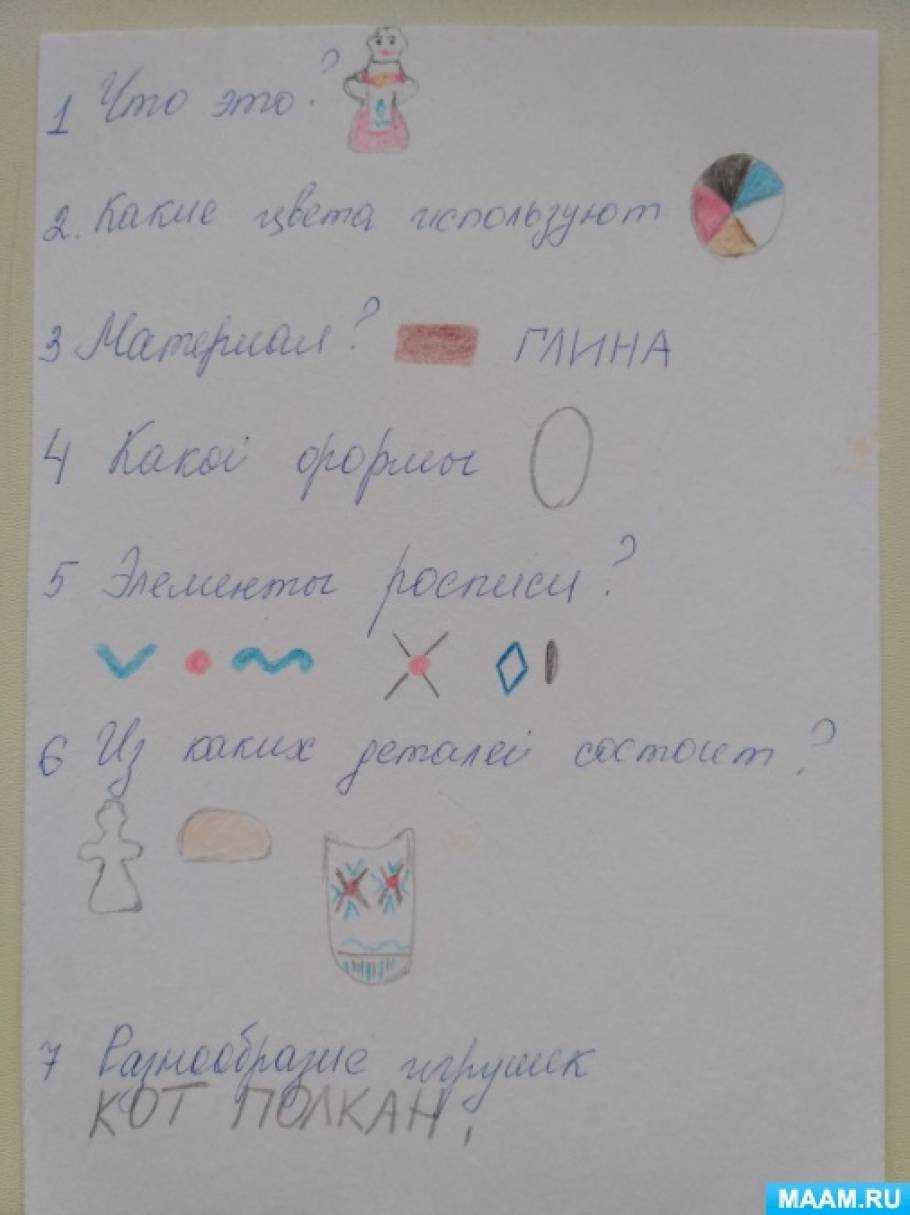 1 Что это?
2. Какие цвета используют
3 Материал? ГЛИНА
4 Какой формы
5 Элементы росписи?
6 Из каких деталей состоит?
7 Разнообразие игрушек
КОТ ПОЛКАН,
MAAM.RU